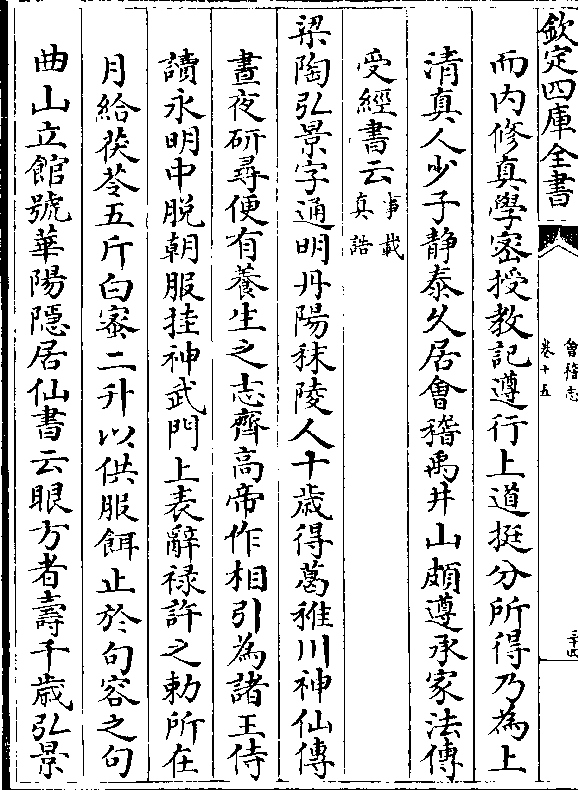 欽定四庫全書
會稽志
卷十五
二十四
而内修真學密授教記遵行上道挺分所得乃為上
清真人少子静泰久居會稽禹井山頗遵承家法傳
受經書云事載真誥
梁陶弘景字通明丹陽秣陵人十歳得葛稚川神仙傳
晝夜研尋便有養生之志齊高帝作相引為諸王侍
讀永明中脱朝服挂神武門上表辭禄許之勅所在
月給茯苓五斤白蜜二升以供服餌止於句容之句
曲山立館號華陽隱居仙書云眼方者壽千歳弘景